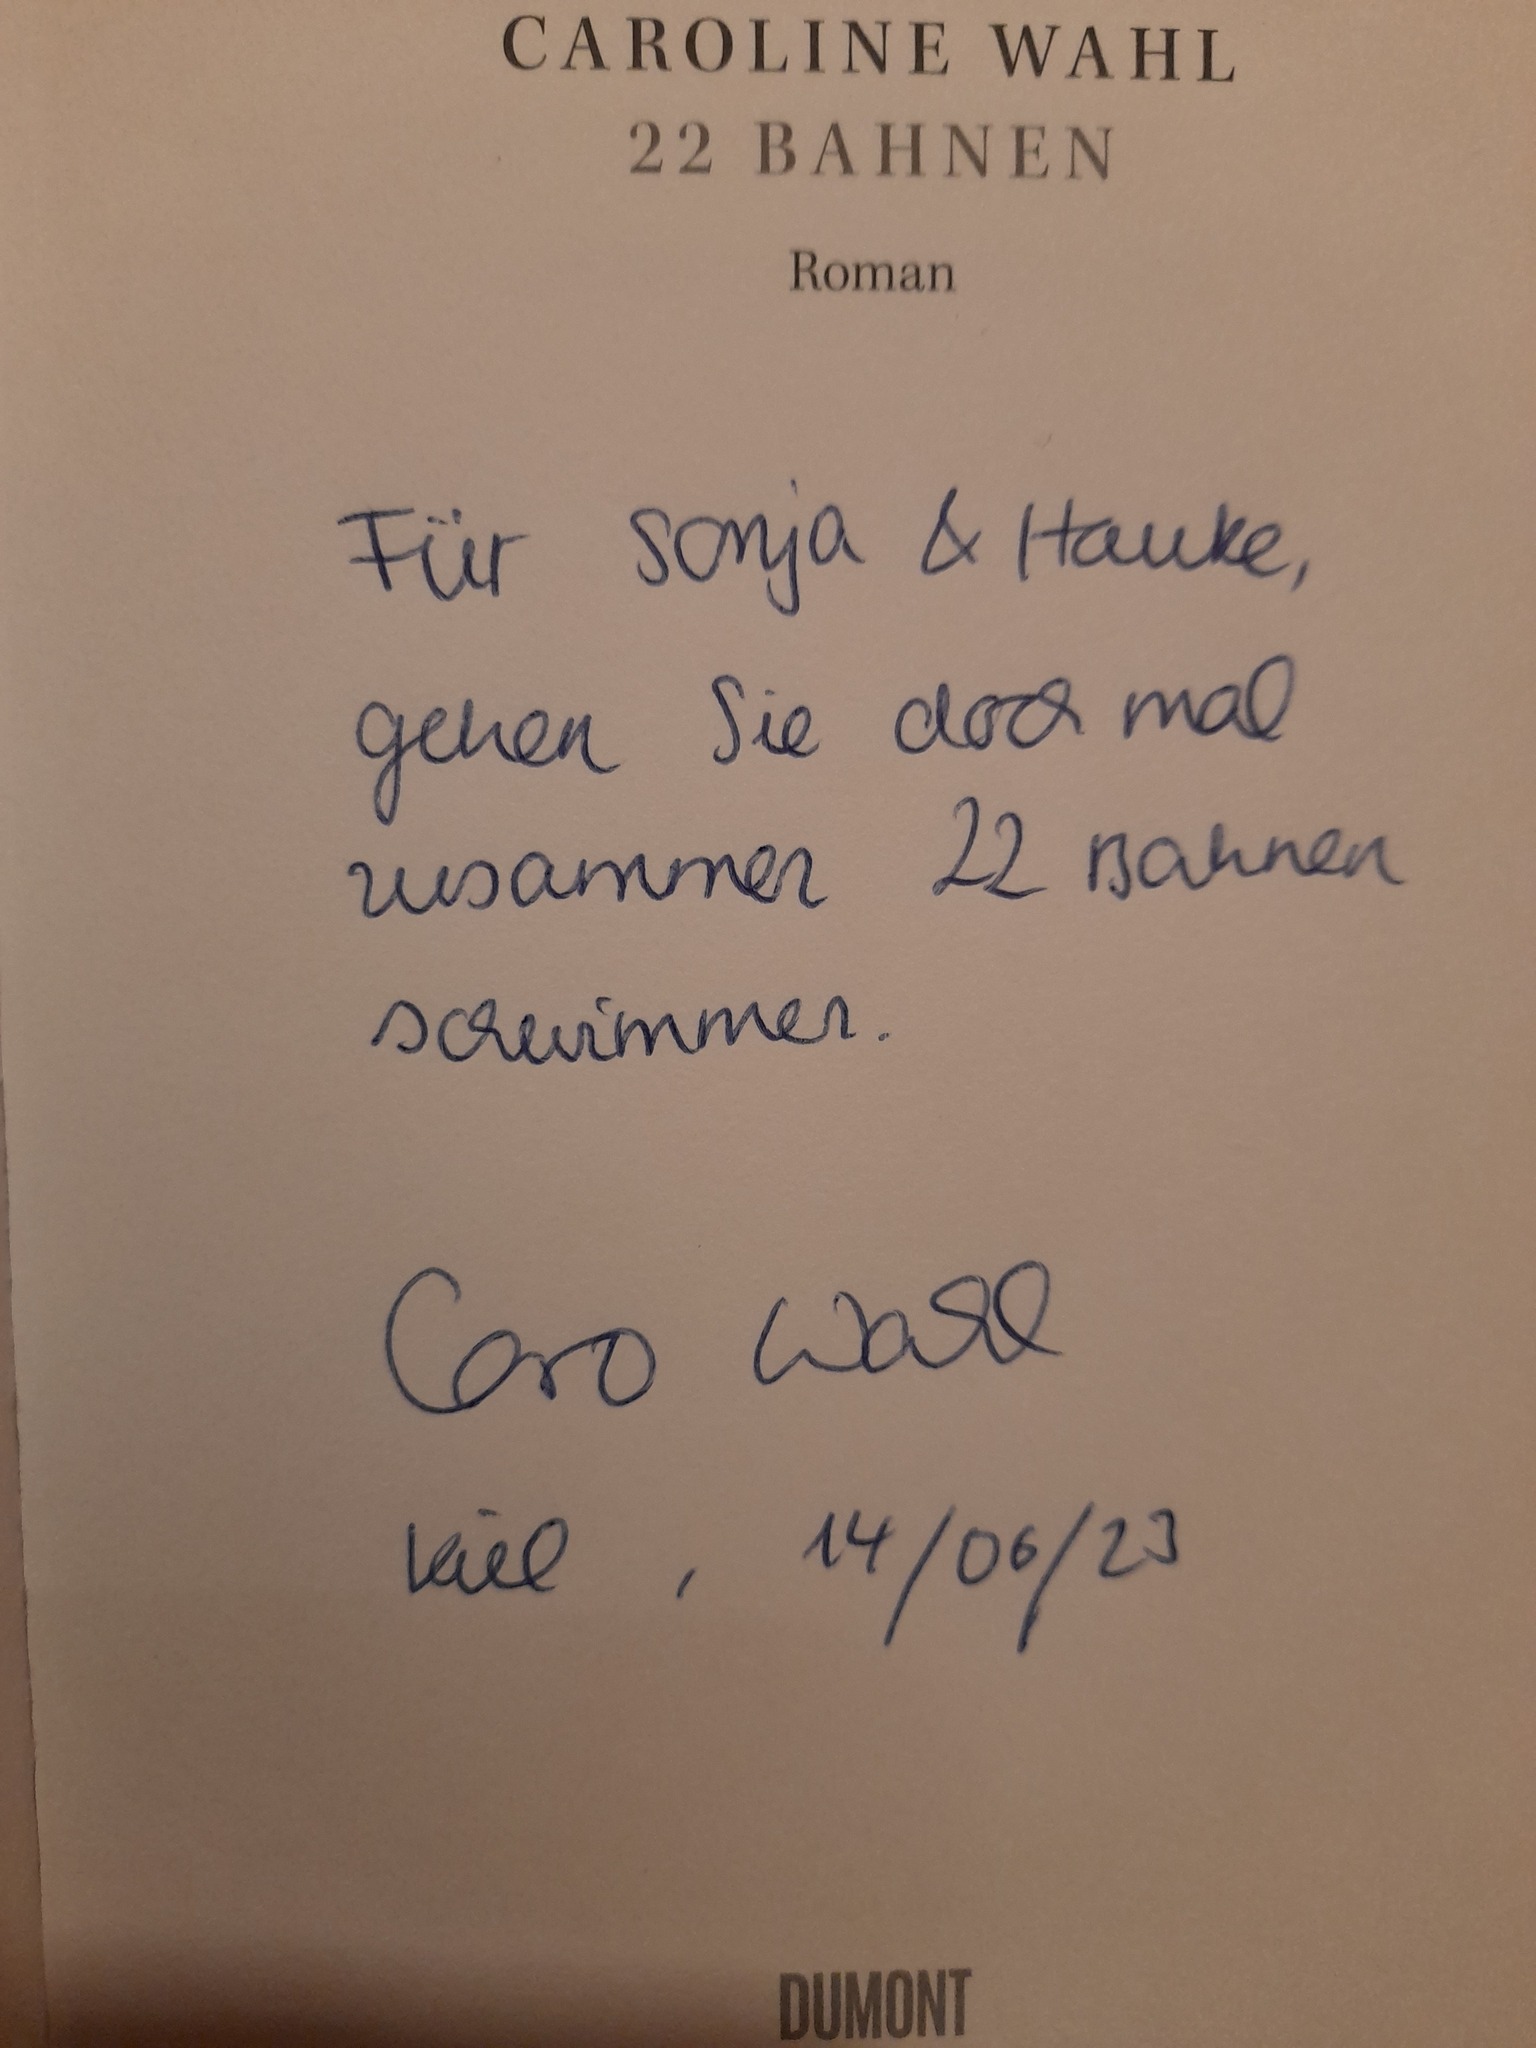 CAROLINE WAHL
22 BAHNEN
Roman
Für Sonja & Hauke,
gehen Sie doch mal
zusammen 22 Bahnen
schwimmen.
Caro Wahl
Kiel, 14/06/23
DUMONT